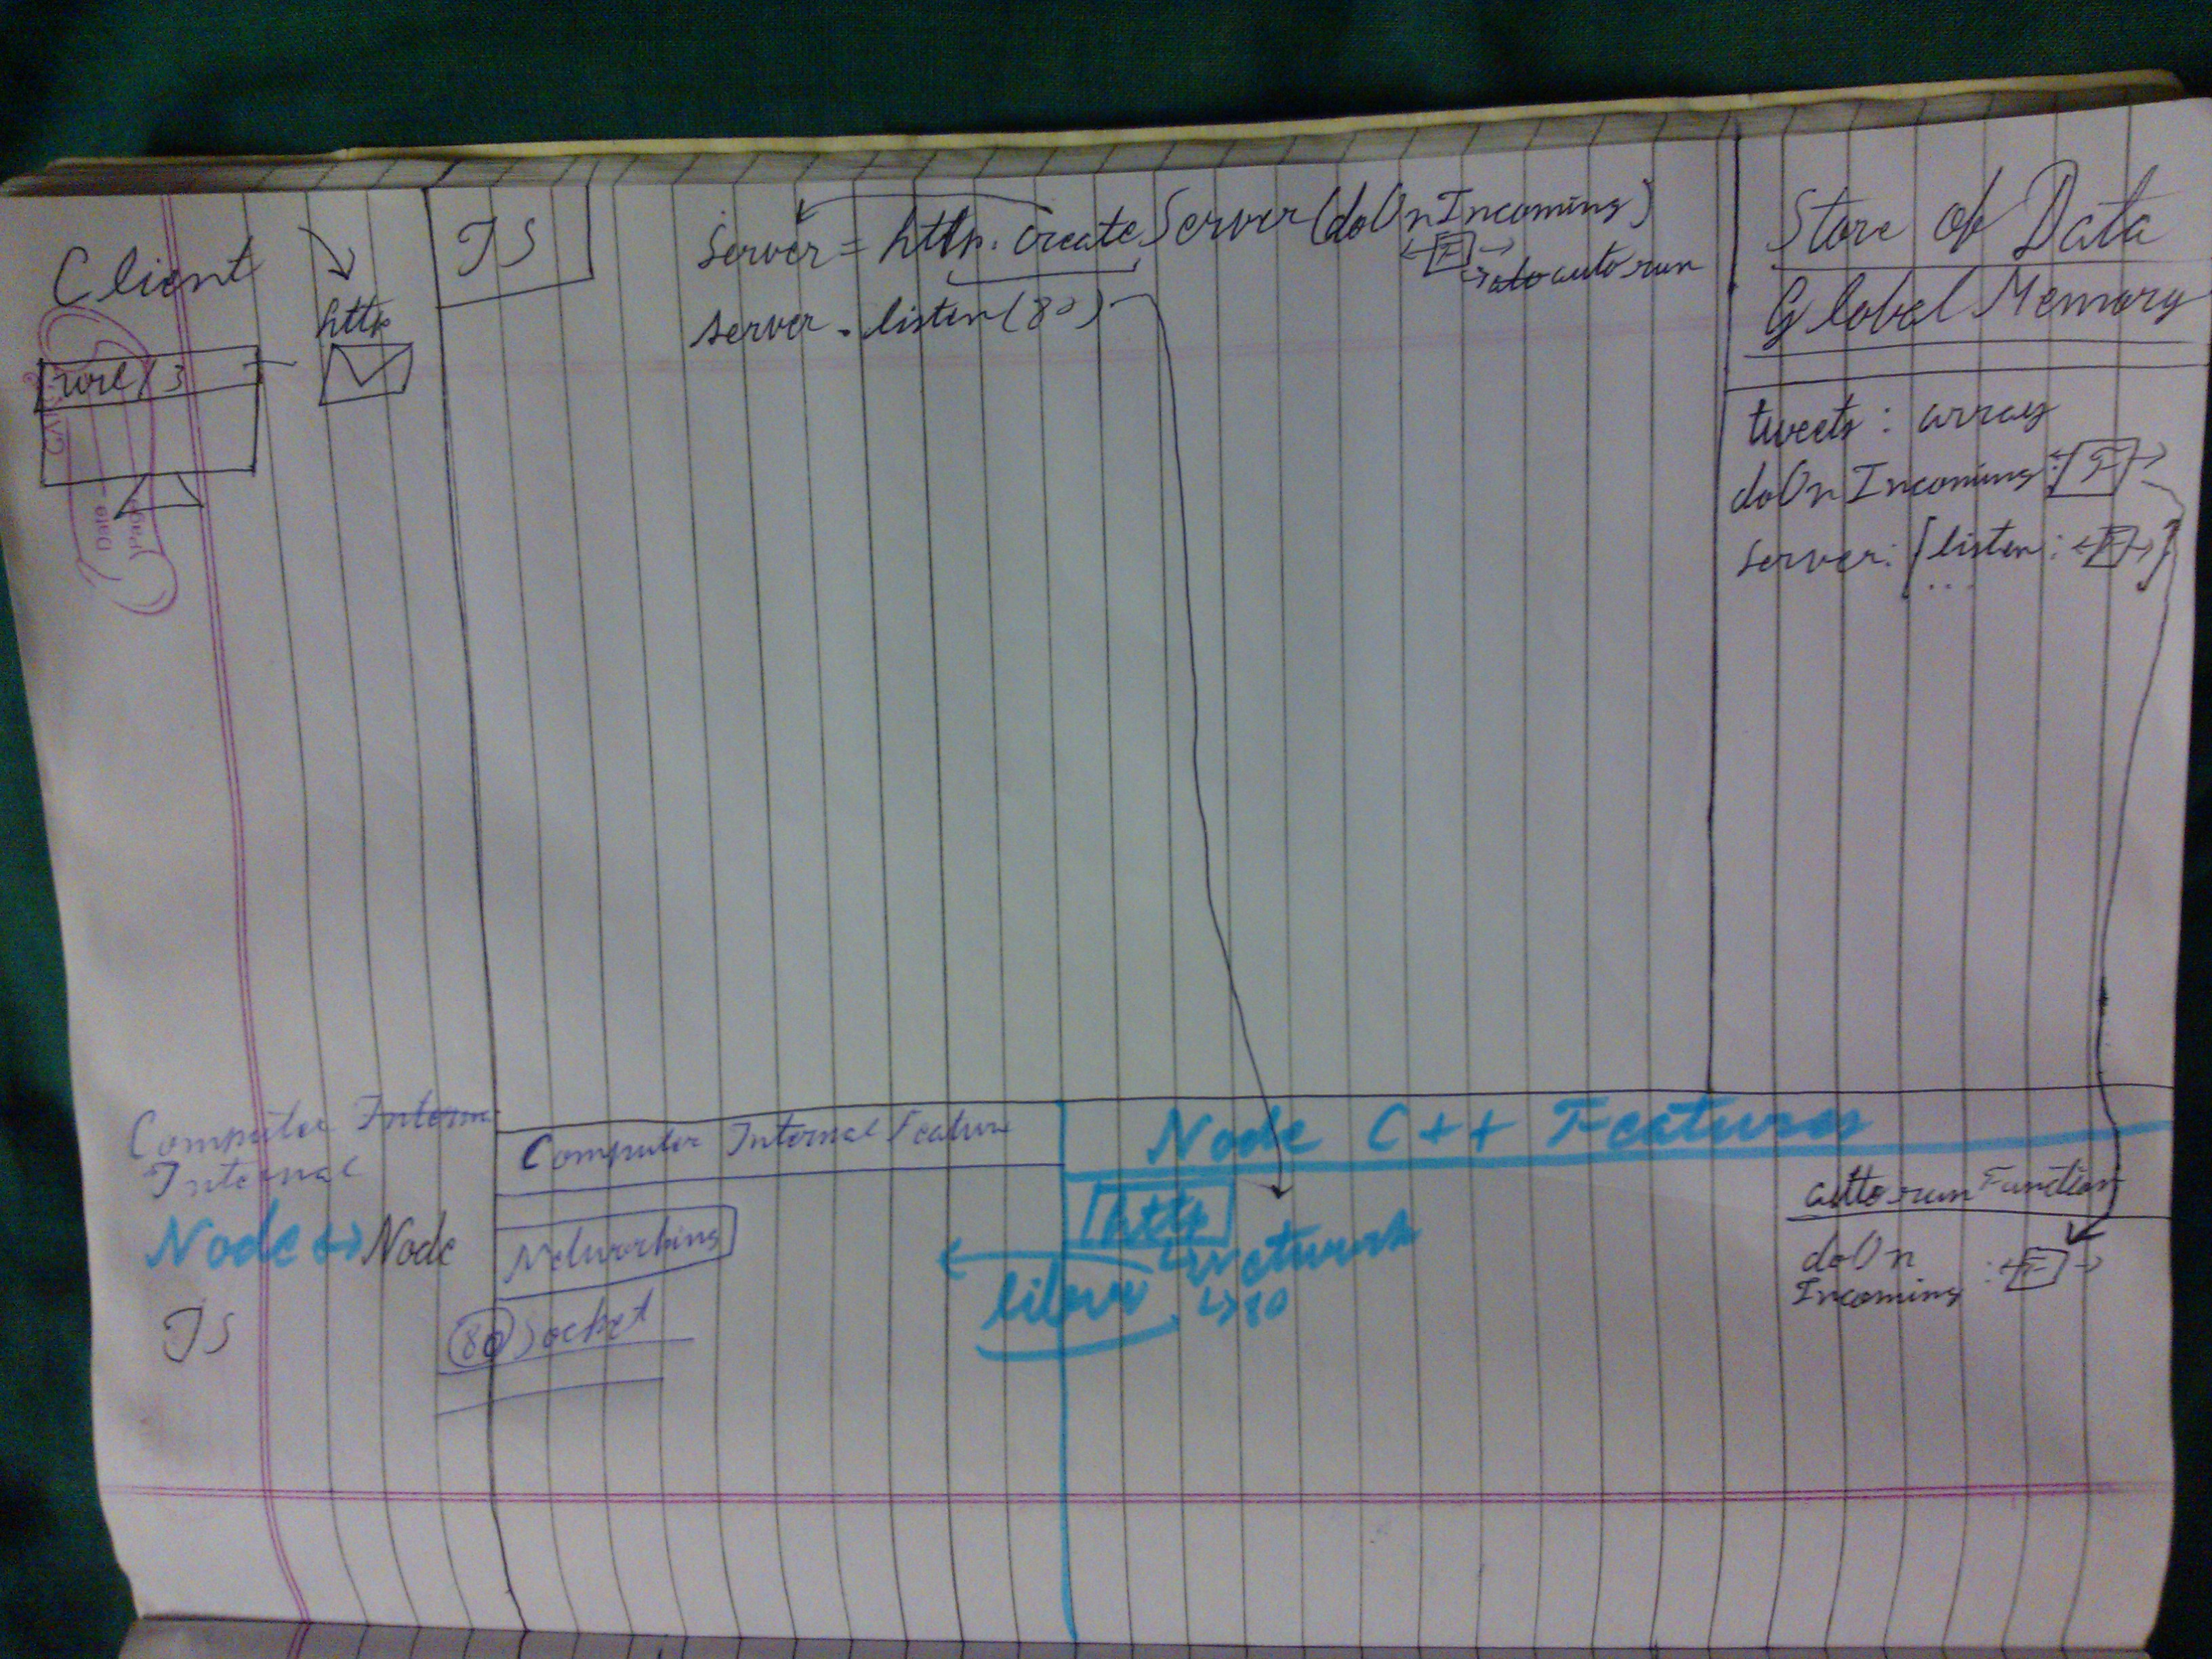 Client
http
url / 3
JS
server = http.createServer(doOnIncoming)
F
auto run
server.listen(80)
Store of Data
Global Memory
tweets : array
doOnIncoming : F
server : { listen : F }
...
Computer
Internal
Node ↔ Node
JS
Computer Internal Feature
Networking
80 Socket
Node C++ Features
http
↳ network
↳ 80
libuv
auto run Function
doOn
Incoming : F
Page
Date